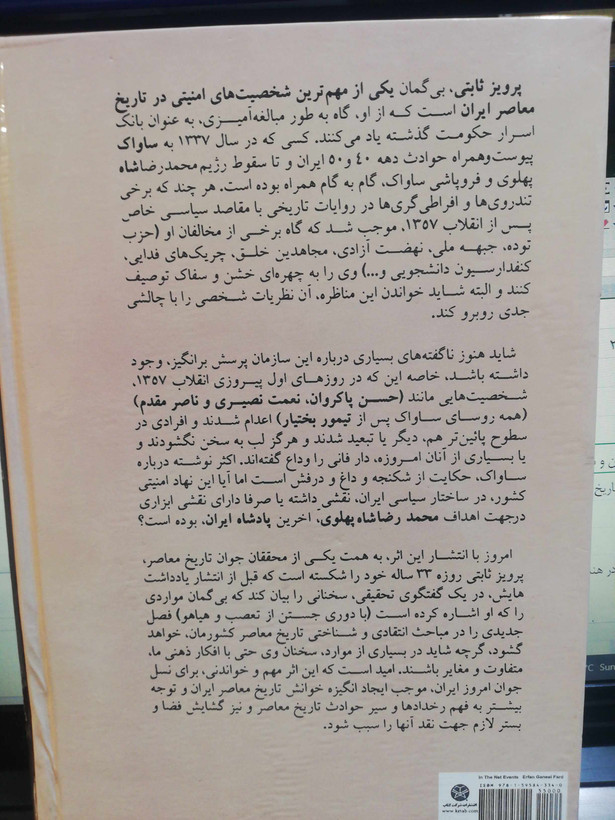 پرویز ثابتی، بی‌گمان یکی از مهم‌ترین شخصیت‌های امنیتی در تاریخ
معاصر ایران است که از او، گاه به طور مبالغه‌آمیزی، به عنوان بانک
اسرار حکومت گذشته یاد می‌کنند. کسی که در سال ۱۳۳۷ به ساواک
پیوست‌وهمراه حوادث دهه ۴۰ و ۵۰ ایران و تا سقوط رژیم محمدرضاشاه
پهلوی و فروپاشی ساواک، گام به گام همراه بوده است. هر چند که برخی
تندروی‌ها و افراطی‌گری‌ها در روایات تاریخی با مقاصد سیاسی خاص
پس از انقلاب ۱۳۵۷، موجب شد که گاه برخی از مخالفان او (حزب
توده، جبهه ملی، نهضت آزادی، مجاهدین خلق، چریک‌های فدایی،
کنفدارسیون دانشجویی و...) وی را به چهره‌ای خشن و سفاک توصیف
کنند و البته شاید خواندن این مناظره، آن نظریات شخصی را با چالشی
جدی روبرو کند.
شاید هنوز ناگفته‌های بسیاری درباره این سازمان پرسش برانگیز، وجود
داشته باشد، خاصه این که در روزهای اول پیروزی انقلاب ۱۳۵۷،
شخصیت‌هایی مانند (حسن پاکروان، نعمت نصیری و ناصر مقدم)
(همه روسای ساواک پس از تیمور بختیار) اعدام شدند و افرادی در
سطوح پائین‌تر هم، دیگر یا تبعید شدند و هرگز لب به سخن نگشودند و
یا بسیاری از آنان امروزه، دار فانی را وداع گفته‌اند. اکثر نوشته درباره
ساواک، حکایت از شکنجه و داغ و درفش است اما آیا این نهاد امنیتی
کشور، در ساختار سیاسی ایران، نقشی داشته یا صرفا دارای نقشی ابزاری
درجهت اهداف محمد رضاشاه پهلوی، آخرین پادشاه ایران، بوده است؟
امروز با انتشار این اثر، به همت یکی از محققان جوان تاریخ معاصر،
پرویز ثابتی روزه ۳۳ ساله خود را شکسته است که قبل از انتشار یادداشت
هایش، در یک گفتگوی تحقیقی، سخنانی را بیان کند که بی‌گمان مواردی
را که او اشاره کرده است (با دوری جستن از تعصب و هیاهو) فصل
جدیدی را در مباحث انتقادی و شناختی تاریخ معاصر کشورمان، خواهد
گشود، گرچه شاید در بسیاری از موارد، سخنان وی حتی با افکار ذهنی ما،
متفاوت و مغایر باشند. امید است که این اثر مهم و خواندنی، برای نسل
جوان امروز ایران، موجب ایجاد انگیزه خوانش تاریخ معاصر ایران و توجه
بیشتر به فهم رخدادها و سیر حوادث تاریخ معاصر و نیز گشایش فضا و
بستر لازم جهت نقد آنها را سبب شود.
In The Net Events Erfan Ganeei Fard
انتشارات شرکت کتاب
www.ketab.com